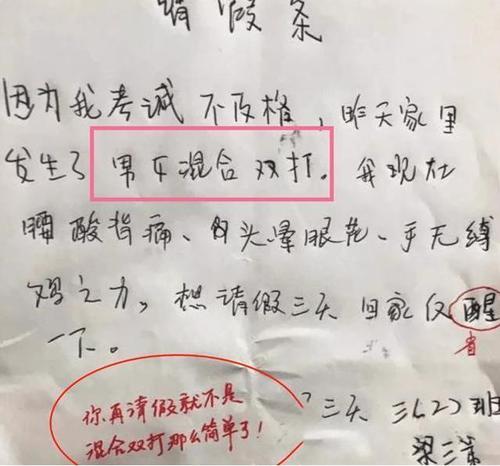 请假条
因为我考诚不及格,昨天家里
发生了男女混合双打。我现在
腰酸背痛、头晕眼花、手无缚
鸡之力,想请假三天 回家仅醒
省
一下。
你再请假就不是
混合双打那么简单了!
三天 三(2)班
梁三